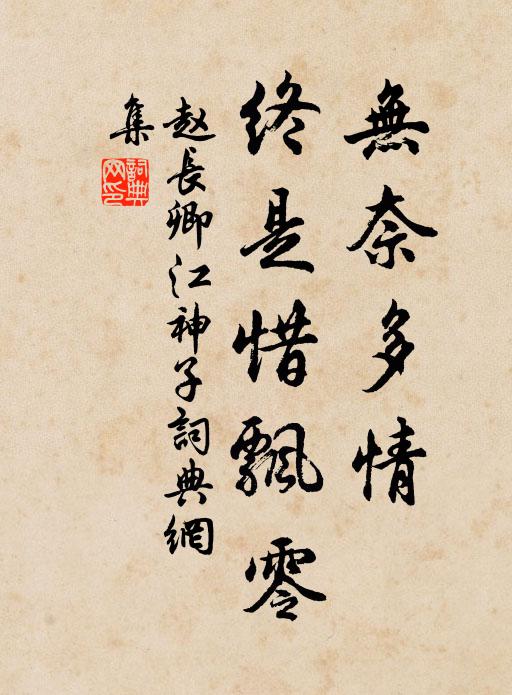 無奈多情
終是惜飄零
赵長卿江神子詞典網
集
詞典
网印